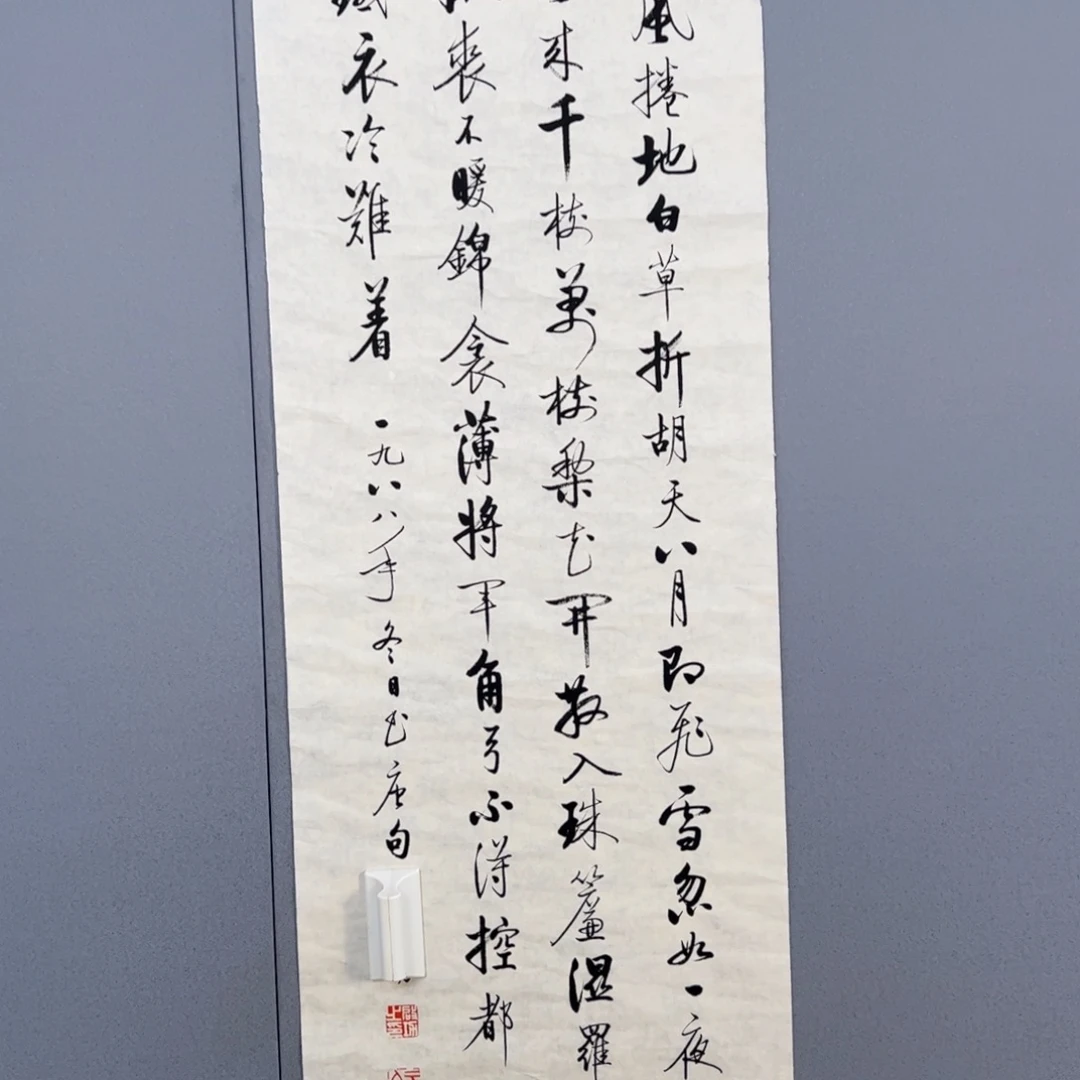 風捲地白草折胡天八月即飛雪忽如一夜
来千樹萬樹梨花開散入珠簾湿羅
裘不暖錦衾薄將軍角弓不得控都
衣冷難着
一九八八年冬日书唐句